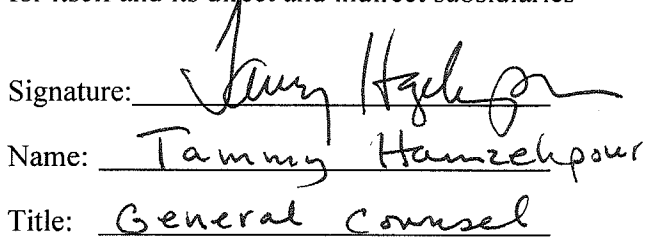 for itself and its direct and indirect subsidiaries
Signature:
Name: Tammy Hamzehpour
Title: General Counsel